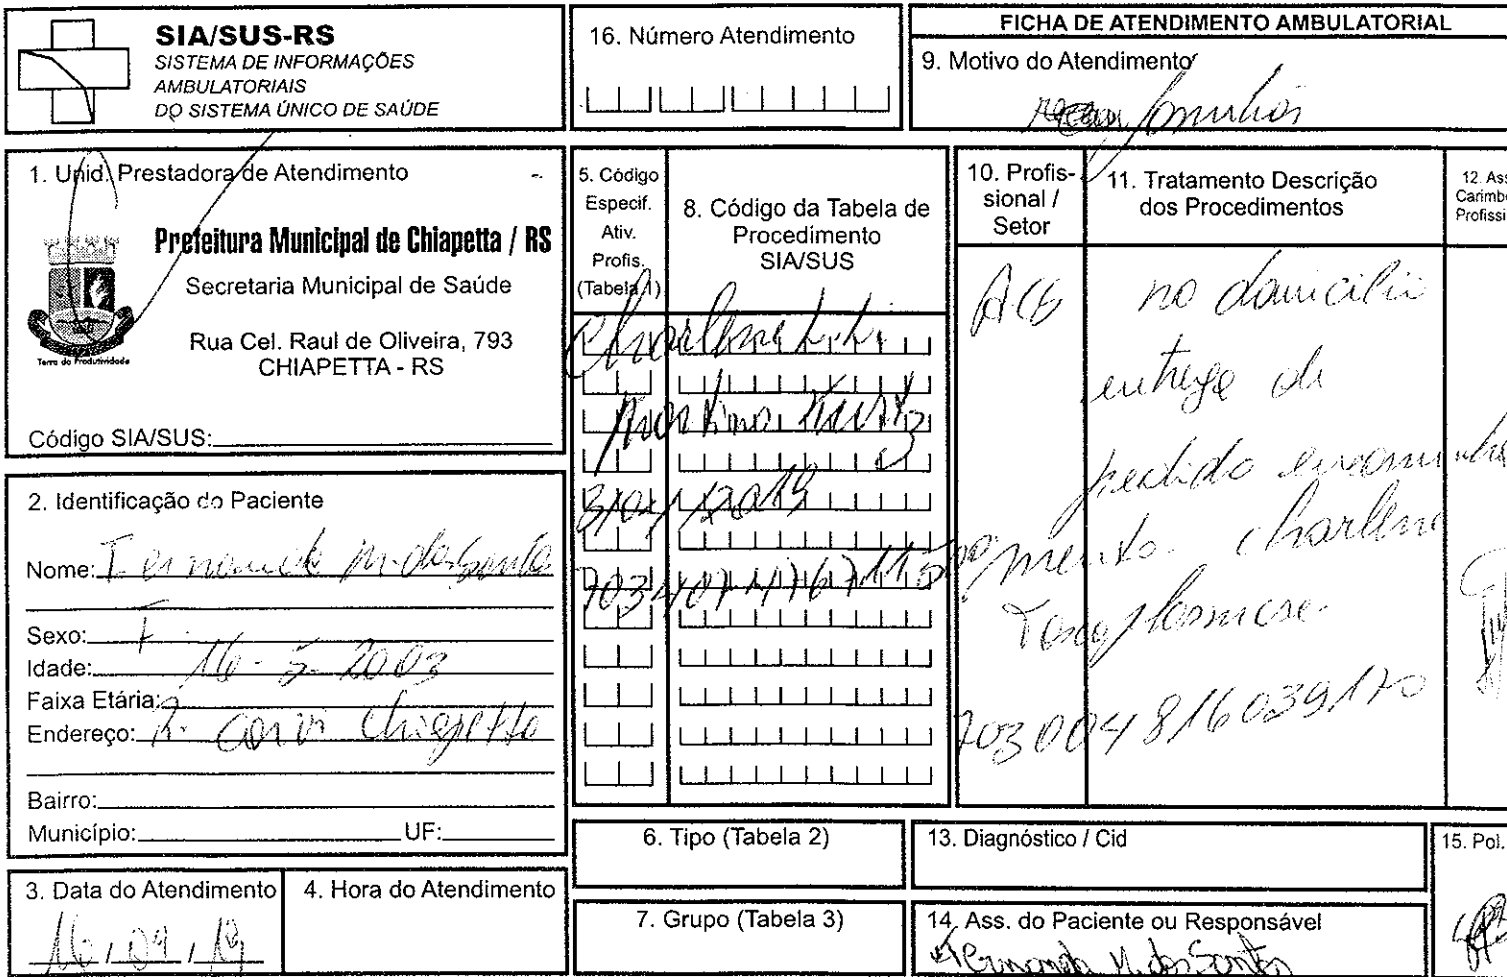 SIA/SUS-RS
SISTEMA DE INFORMAÇÕES
AMBULATORIAIS
DO SISTEMA ÚNICO DE SAÚDE
16. Número Atendimento
FICHA DE ATENDIMENTO AMBULATORIAL
9. Motivo do Atendimento
1. Unid. Prestadora de Atendimento
Prefeitura Municipal de Chiapetta / RS
Secretaria Municipal de Saúde
Rua Cel. Raul de Oliveira, 793
CHIAPETTA - RS
Terra da Produtividade
Código SIA/SUS:
2. Identificação do Paciente
Nome: M. dos Santos
Sexo: F
Idade: 16-5-2003
Faixa Etária:
Endereço: R. Chiapetta
Bairro:
Município: UF:
3. Data do Atendimento
16, 09, 19
4. Hora do Atendimento
5. Código
Especif.
Ativ.
Profis.
(Tabela 1)
8. Código da Tabela de
Procedimento
SIA/SUS
Charlene
Kurtz
10. Profis-
sional /
Setor
11. Tratamento Descrição
dos Procedimentos
12. Ass
Carimbo
Profissi
no domicilio
entrega de
pedido encaminha
mento. Charlene
Toxoplasmose.
703004816039170
6. Tipo (Tabela 2)
7. Grupo (Tabela 3)
13. Diagnóstico / Cid
14. Ass. do Paciente ou Responsável
Fernanda M. dos Santos
15. Pol.